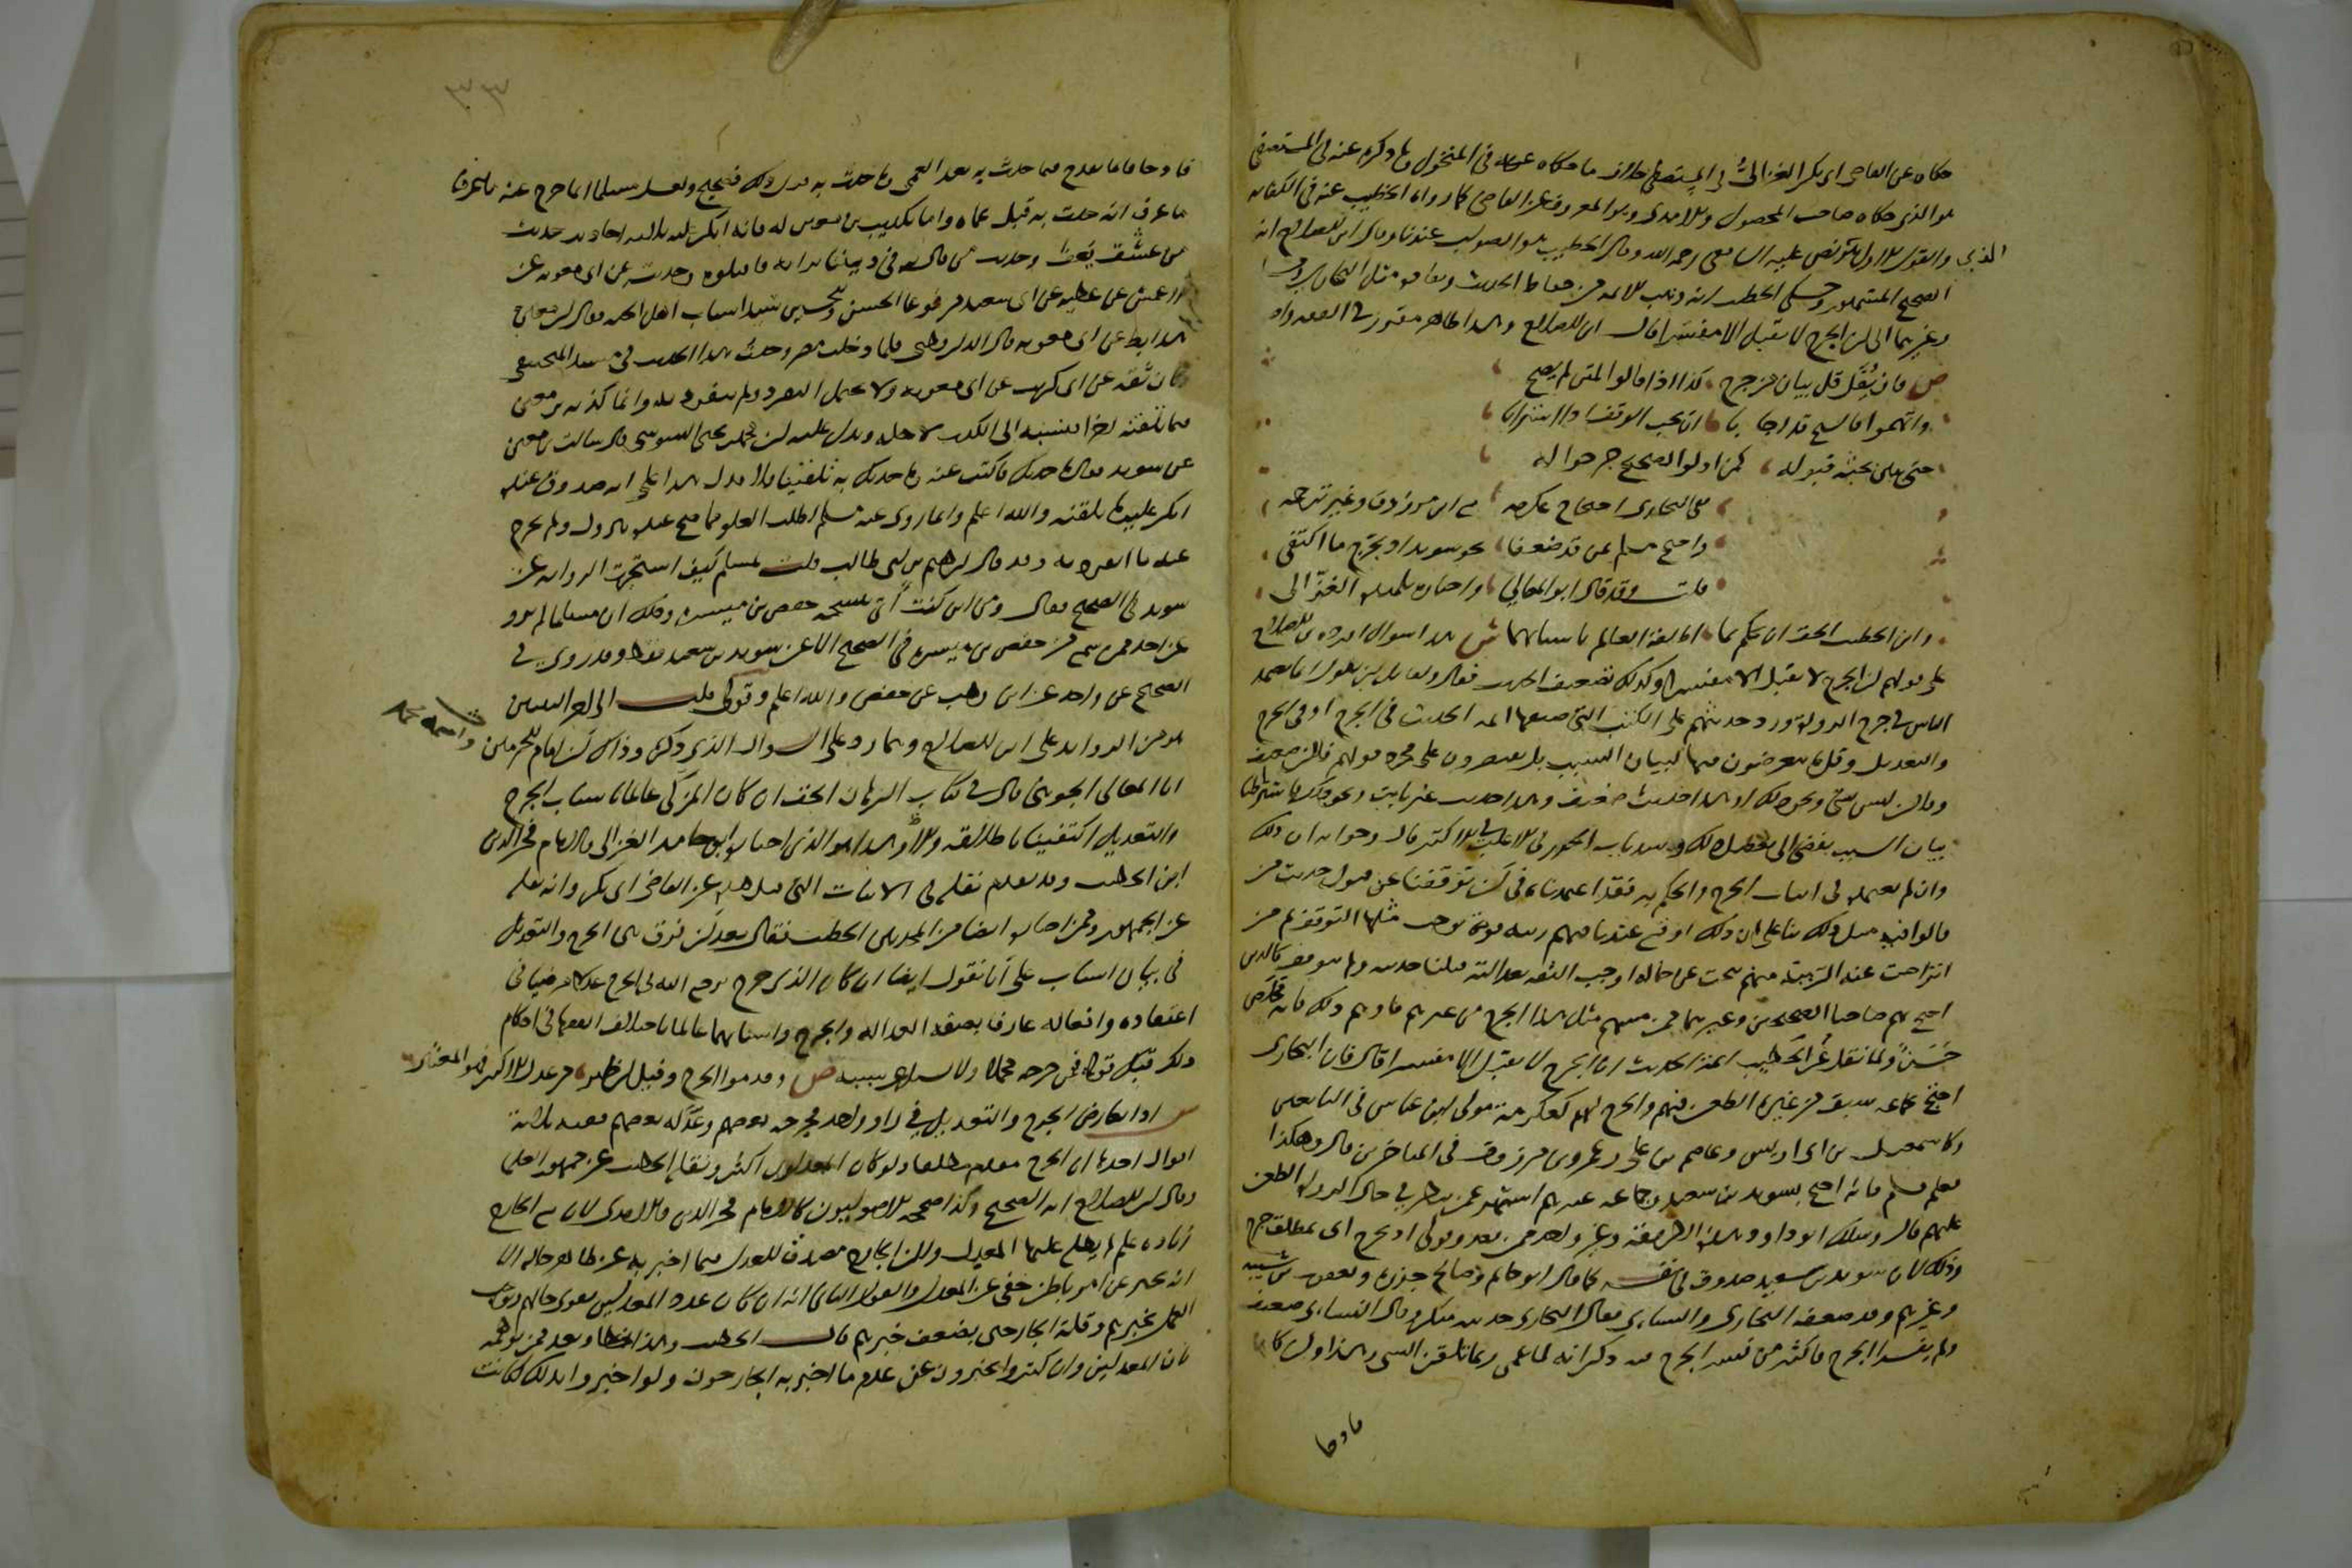 حكاه عن القاضي ابي بكر الغزالي في المستصفى خلاف ما حكاه عنه في المنخول وما ذكره عنه في المستصفى
هو الذي حكاه صاحب المحصول والآمدي وهو المعروف عن القاضي كما رواه الخطيب عنه في الكفاية
والقول الاول هو الذي نص عليه الشافعي رحمه الله وقال الخطيب هو الصواب عندنا وقال ابن الصلاح انه
الصحيح المشهور وحكى الخطيب انه ذهب الائمة من حفاظ الحديث ونقاده مثل البخاري ومسلم
وغيرهما الى ان الجرح لا يقبل الا مفسرا قال ابن الصلاح وهذا ظاهر مقرر في الفقه واصوله
ص فان يُقَل قل بيان من جرح كذا اذا قالوا لمتن لم يصح
وابهموا فالشيخ قد اجابا ان يجب الوقف اذا استرابا
حتى يبين بحثه قبوله كمن اولو الصحيح خرجوا له
ففي البخاري احتجاج عكرمه مع ابن مرزوق وغير ترجمه
واحتج مسلم بمن قد ضعفا نحو سويد اذ بجرح ما اكتفى
قلت وقد قال ابو المعالي واختاره تلميذه الغزّالي
وابن الخطيب الحق ان يحكم بما اطلقه العالم باسبابهما ش هذا سؤال اورده ابن الصلاح
على قولهم ان الجرح لا يقبل الا مفسرا وكذلك تضعيف الحديث فقال ولقائل ان يقول انما يعتمد
الناس في جرح الرواة ورد حديثهم على الكتب التي صنفها ائمة الحديث في الجرح او في الجرح
والتعديل وقل ما يتعرضون فيها لبيان السبب بل يقتصرون على مجرد قولهم فلان ضعيف
وفلان ليس بشيء ونحو ذلك او هذا حديث ضعيف وهذا حديث غير ثابت ونحو ذلك فاشتراط
بيان السبب يفضي الى تعطيل ذلك وسد باب الجرح في الاغلب الاكثر قال وجوابه ان ذلك
وان لم نعتمده في اثبات الجرح والحكم به فقد اعتمدناه في ان توقفنا عن قبول حديث من
قالوا فيه مثل ذلك بناء على ان ذلك اوقع عندنا فيهم ريبة قوية يوجب مثلها التوقف ثم من
انزاحت عنه الريبة منهم ببحث عن حاله اوجب الثقة بعدالته قبلنا حديثه ولم نتوقف كالذين
احتج بهم صاحبا الصحيحين وغيرهما فمن مسهم مثل هذا الجرح من غيرهم فافهم ذلك فانه مَخلَص
حَسَن ولما نقل عن الخطيب ائمة الحديث ان الجرح لا يقبل الا مفسرا قال فان البخاري
احتج بجماعة سبق من غيره الطعن فيهم والجرح لهم كعكرمة مولى ابن عباس في التابعين
وكاسمعيل بن ابي اويس وعاصم بن علي وعمرو بن مرزوق في المتاخرين قال وهكذا
فعل مسلم فانه احتج بسويد بن سعيد وجماعة غيرهم اشتهر عمن ينظر في حال الرواة الطعن
عليهم قال وسلك ابو داود هذه الطريقة وغير واحد ممن بعده وقولي اذ بجرح اي بمطلق جرح
وذلك لان سويد بن سعيد صدوق في نفسه كما قال ابو حاتم وصالح جزرة ويعقوب بن شيبة
وغيرهم وقد ضعفه البخاري والنسائي فقال البخاري حديثه منكر وقال النسائي ضعيف
ولم يفسرا الجرح واكثر من فسر الجرح فيه ذكر انه لما عمي ربما تلقن الشيء وهذا وان كان
قادحا
٣٣
قادحا فانما يقدح فيما حدث به بعد العمى وما حدث به قبل ذلك فصحيح ولعل مسلما انما خرج عنه ما عرف
ما عرف انه حدث به قبل عماه واما تكذيب ابن معين له فانه انكر عليه ثلاثة احاديث حديث
من عشق فعف وحديث من قال في ديننا برايه فاقتلوه وحديثه عن ابي معوية عن
الاعمش عن عطية عن ابي سعيد مرفوعا الحسن والحسين سيدا شباب اهل الجنة فقال ابن معين
هذا باطل عن ابي معوية قال الدارقطني فلما دخلت مصر وجدت هذا الحديث في مسند المنجنيقي
وكان ثقة عن ابي كريب عن ابي معوية ولم ينفرد به وانما كذبه ابن معين
فيما تلقنه اخرا فنسبه الى الكذب لاجله ويدل عليه ان محمد بن يحيى السوسي قال سالت ابن معين
عن سويد فقال ما حدثك فاكتب عنه وما حدثك به تلقينا فلا فدل هذا على انه صدوق عنده
انكر عليه ما تلقنه والله اعلم وانما روى عنه مسلم لطلب العلو مما صح عنده بنزول ولم يخرج
عنه ما انفرد به وقد قال ابراهيم بن ابي طالب قلت لمسلم كيف استجزت الرواية عن
سويد في الصحيح فقال ومن اين كنت آتي بنسخة حفص بن ميسرة وذلك ان مسلما لم يرو
عن احد ممن سمع من حفص بن ميسرة في الصحيح الا عن سويد بن سعيد فقط وقد روى في
الصحيح عن واحد عن ابن وهب عن حفص والله اعلم وقولي قلت الى اخر البيتين
هو من الزوايد على ابن الصلاح وهما رد على السؤال الذي ذكره وذلك ان امام الحرمين
ابا المعالي الجويني قال في كتاب البرهان الحق ان كان المزكي عالما باسباب الجرح
والتعديل اكتفينا باطلاقه والا فلا وهذا هو الذي اختاره ابو حامد الغزالي والامام فخر الدين
ابن الخطيب وقد تقدم نقله في الابيات التي قبل هذه عن القاضي ابي بكر وانه نقله
عن الجمهور وممن اختاره ايضا من المحدثين الخطيب فقال بعد ان فرق بين الجرح والتعديل
في بيان اسباب على أنا نقول ايضا ان كان الذي يرجع اليه في الجرح عدلا مرضيا في
اعتقاده وافعاله عارفا بصفة العدالة والجرح واسبابهما عالما باختلاف الفقهاء في احكام
ذلك قبل قوله فمن جرحه مجملا ولا يسال عن سببه ص وقدموا الجرح وقيل ان ظهر من عدل الاكثر فهو المعتبر
ش اذا تعارض الجرح والتعديل في راو واحد فجرحه بعضهم وعدّله بعضهم ففيه ثلاثة
اقوال احدها ان الجرح مقدم مطلقا ولو كان المعدلون اكثر ونقله الخطيب عن جمهور العلما
وقال ابن الصلاح انه الصحيح وكذا صححه الاصوليون كالامام فخر الدين والآمدي لان مع الجارح
زيادة علم لم يطلع عليها المعدل ولان الجارح مصدق للمعدل فيما اخبر به عن ظاهر حاله الا
انه يخبر عن امر باطن خفي عن المعدل والقول الثاني انه ان كان عدد المعدلين
بخبرهم وقلة الجارحين يضعف خبرهم قال الخطيب وهذا خطا وبعد ممن توهمه
لان المعدلين وان كثروا ليسوا يخبرون عن عدم ما اخبر به الجارحون ولو اخبروا بذلك لكانت